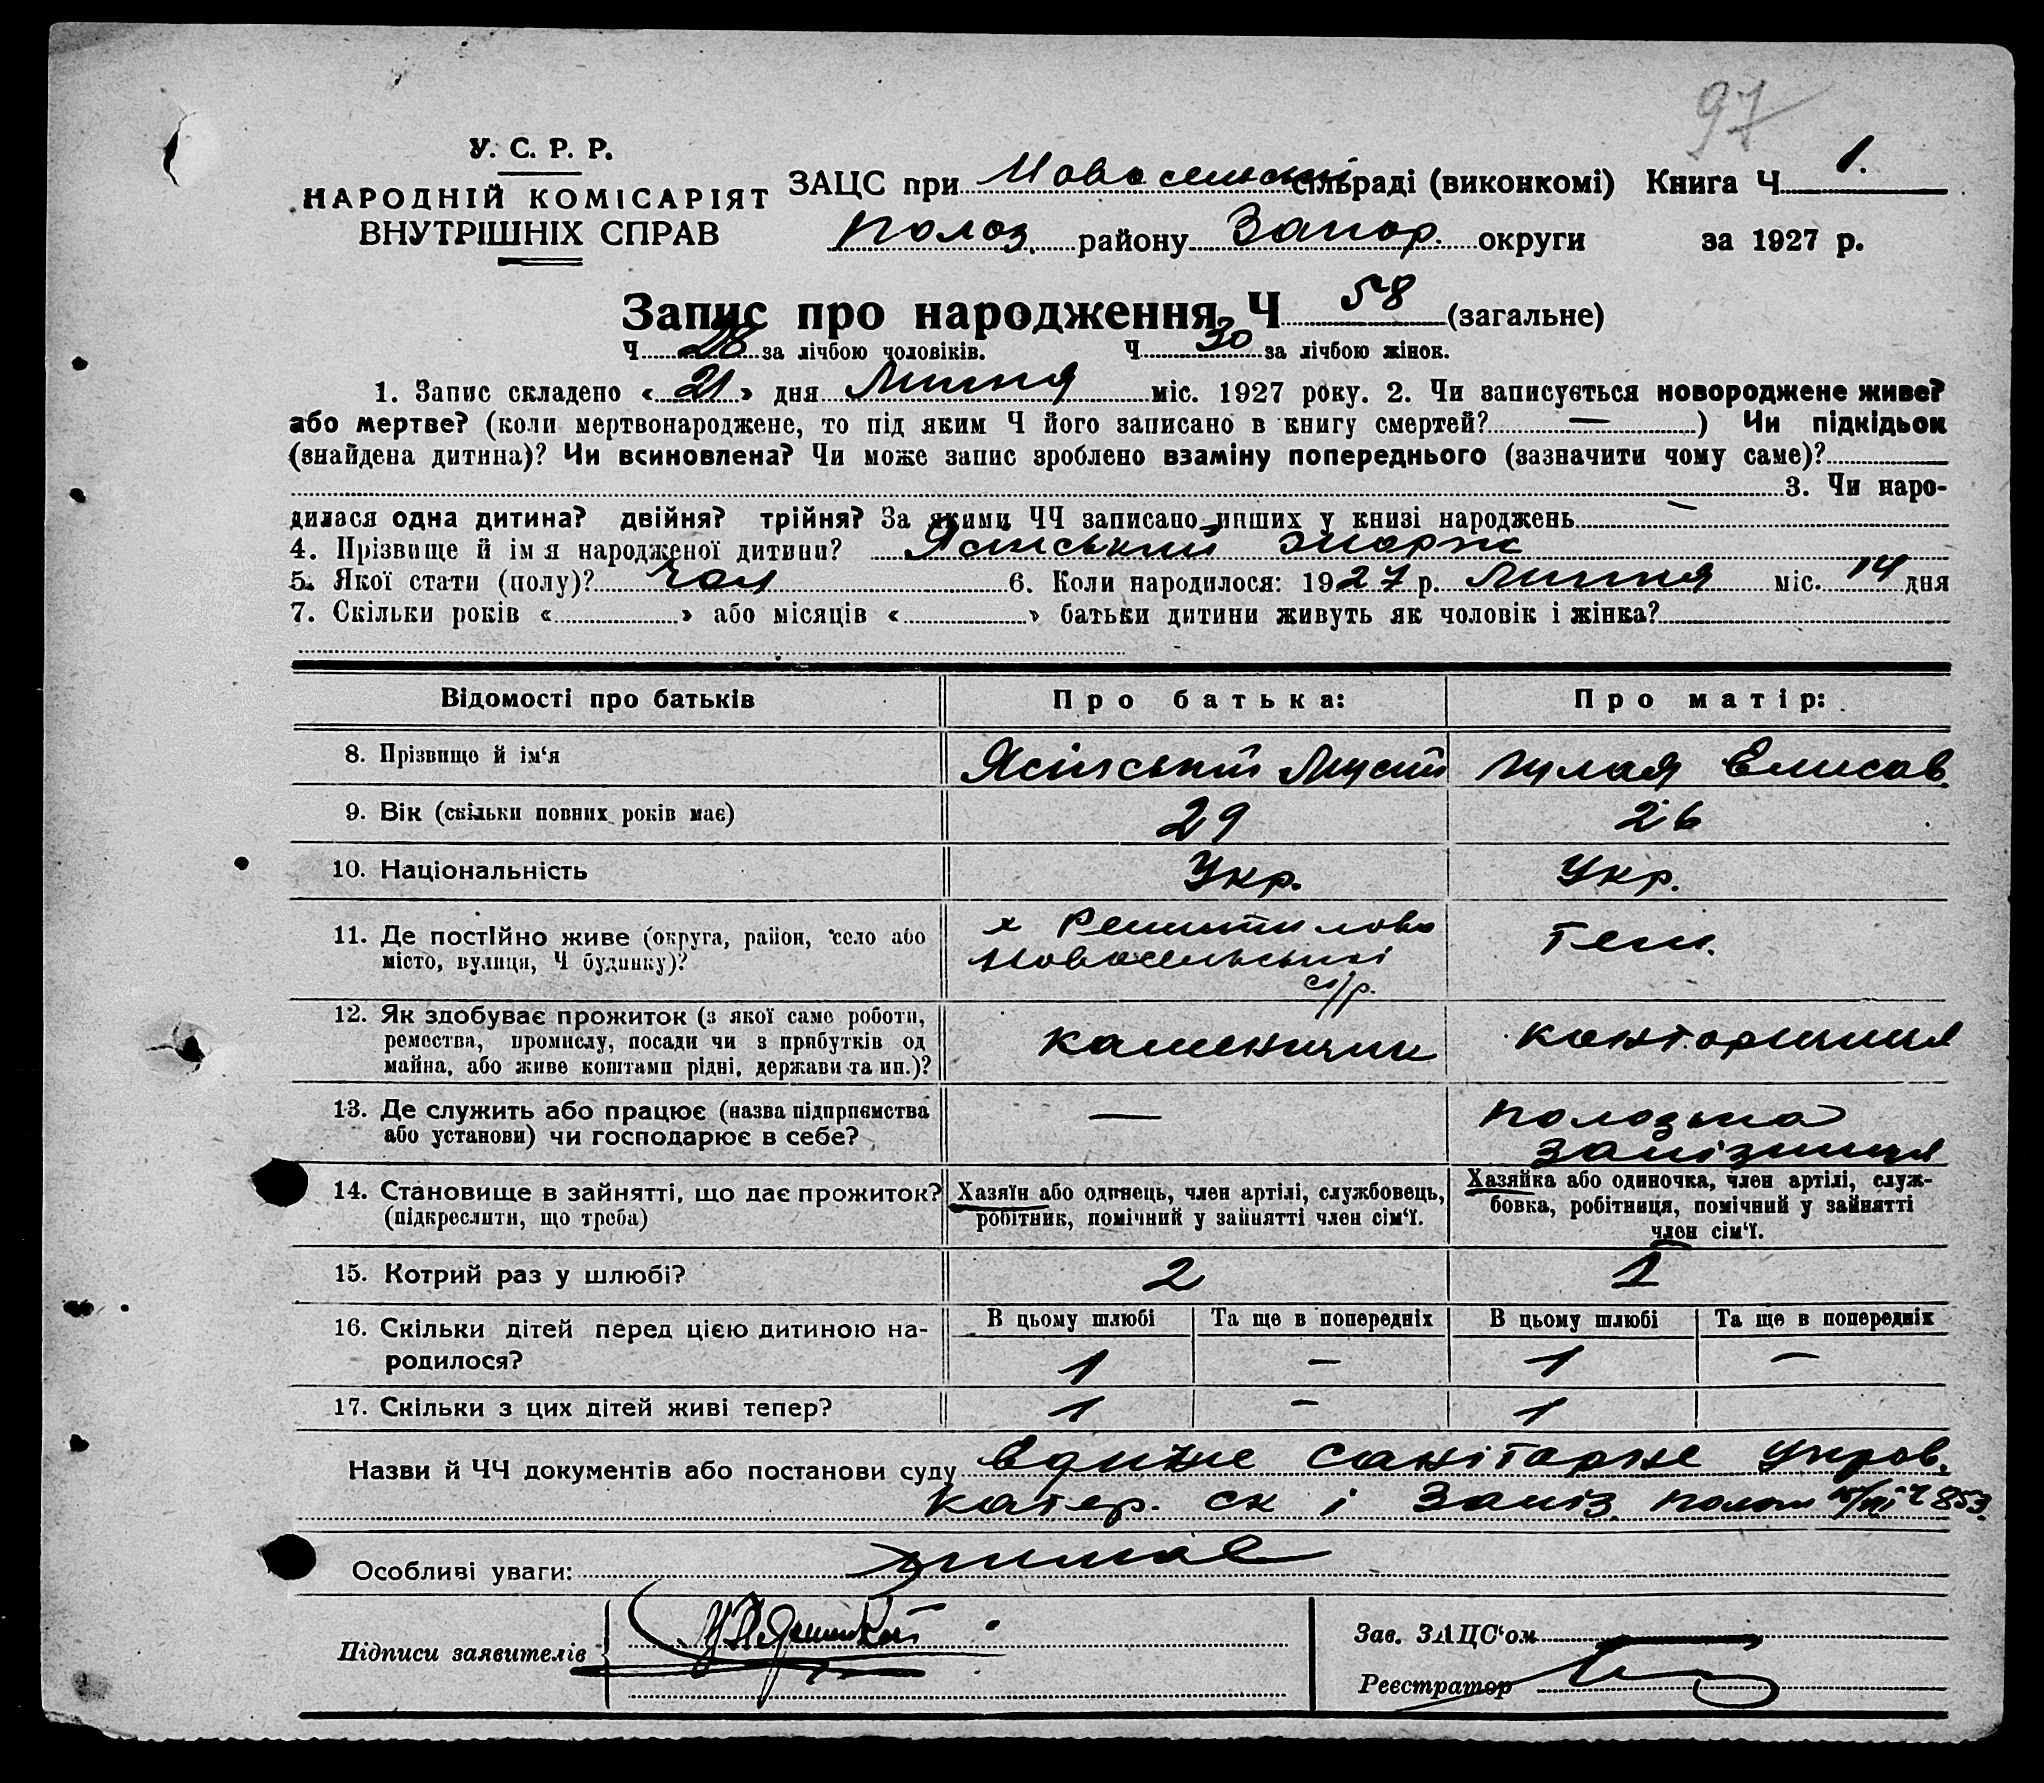 97
У. С. Р. Р.
НАРОДНІЙ КОМІСАРІЯТ
ВНУТРІШНІХ СПРАВ
ЗАЦС при Новоселькій сільраді (виконкомі) Книга Ч 1.
Полоз. району Запор. округи за 1927 р.
Запис про народження Ч 58 (загальне)
Ч 28 за лічбою чоловіків. Ч 30 за лічбою жінок.
1. Запис складено « 21 » дня Липня міс. 1927 року. 2. Чи записується новороджене живе?
або мертве? (коли мертвонароджене, то під яким Ч його записано в книгу смертей? — ) Чи підкідьок
(знайдена дитина)? Чи всиновлена? Чи може запис зроблено взаміну попереднього (зазначити чому саме)?
3. Чи наро-
дилася одна дитина? двійня? трійня? За якими ЧЧ записано инших у книзі народжень —
4. Прізвище й ім я народженої дитини? Ясінський
5. Якої стати (полу)? чол 6. Коли народилося: 1927 р. Липня міс. 14 дня
7. Скільки років « » або місяців « » батьки дитини живуть як чоловік і жінка?
Відомості про батьків Про батька: Про матір:
8. Прізвище й ім‘я Ясінський Мусій Гулая Елисав
9. Вік (скільки повних років має) 29 26
10. Національність Укр. Укр.
11. Де постійно живе (округа, район, село або
місто, вулиця, Ч будинку)?
х Решитилово
Новосельської
с/р.
Теж.
12. Як здобуває прожиток (з якої само роботи,
ремества, промислу, посади чи з прибутків од
майна, або живе коштами рідні, держави та ин.)?
каменщик конторщиця
13. Де служить або працює (назва підприємства
або установи) чи господарює в себе?
—
Полозька
залізниця
14. Становище в зайнятті, що дає прожиток?
(підкреслити, що треба)
Хазяїн або одинець, член артілі, службовець,
робітник, помічний у зайнятті член сім‘ї.
Хазяйка або одиночка, член артілі, служ-
бовка, робітниця, помічний у зайнятті
член сім‘ї.
15. Котрий раз у шлюбі? 2 1
16. Скільки дітей перед цією дитиною на-
родилося?
В цьому шлюбі Та ще в попередніх В цьому шлюбі Та ще в попередніх
1 — 1 —
17. Скільки з цих дітей живі тепер? 1 — 1
Назви й ЧЧ документів або постанови суду санітарне управ.
Катер. ск і Заліз. 853
Особливі уваги:
Підписи заявителів
Зав. ЗАЦС‘ом
Реєстратор